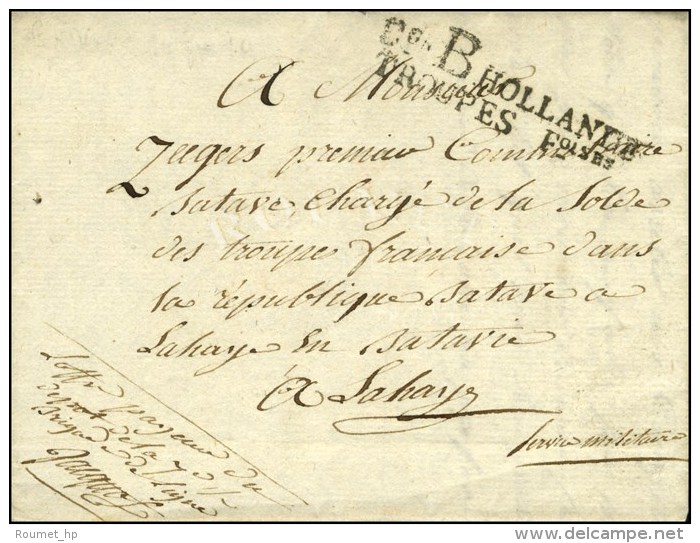 Don B HOLLANDE
TROUPES Foises
A Monsieur
Zeegers premier Commissaire
Batave Chargé de la Solde
des troupe française dans
la république Batave a
Lahaye en Batavie
A Lahaye
Service militaire
L'offer payeur du
depot de la 7 de
Brigade de ligne
Roumet_hp
delcampe.net